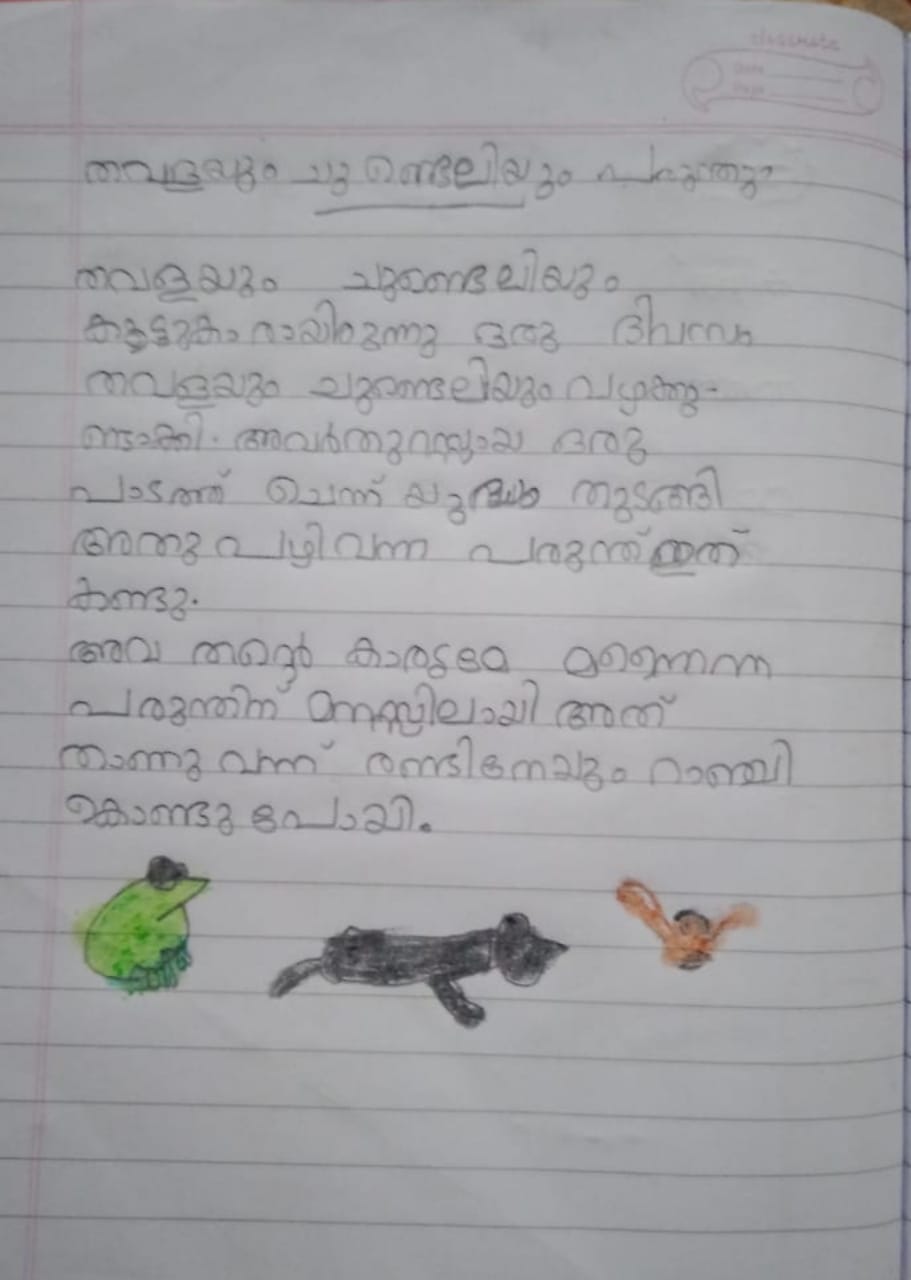 classmate
Date
Page
തവളയും ചുണ്ടെലിയും പരുന്തും
തവളയും ചുണ്ടെലിയും
കൂട്ടുകാരായിരുന്നു ഒരു ദിവസം
തവളയും ചുണ്ടെലിയും വഴക്കു-
ണ്ടാക്കി. അവർതുറസ്സായ ഒരു
പാടത്ത് ചെന്ന് യുദ്ധം തുടങ്ങി
അതുവഴിവന്ന പരുന്ത് ഇത്
കണ്ടു.
അവ തൻ്റെ ഇര
പരുന്തിന് മനസ്സിലായി അത്
താണുവന്ന് രണ്ടിനേയും റാഞ്ചി
കൊണ്ടുപോയി.